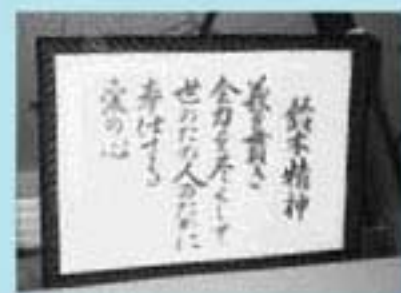 鈴木精神
義を貫き
全力を尽くして
世のため人のために
奉仕する
愛の心